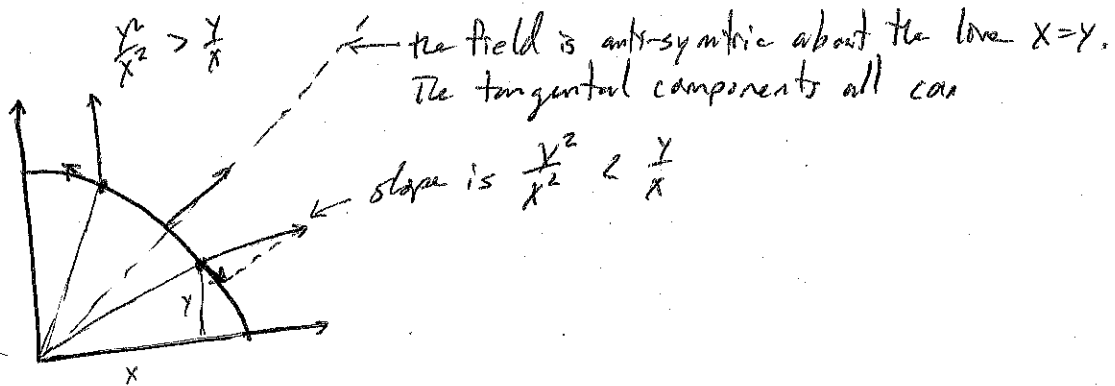 y²/x² > y/x
the field is anti-symtric about the line x=y.
The tangential components all can
slope is y²/x² < y/x
y
x